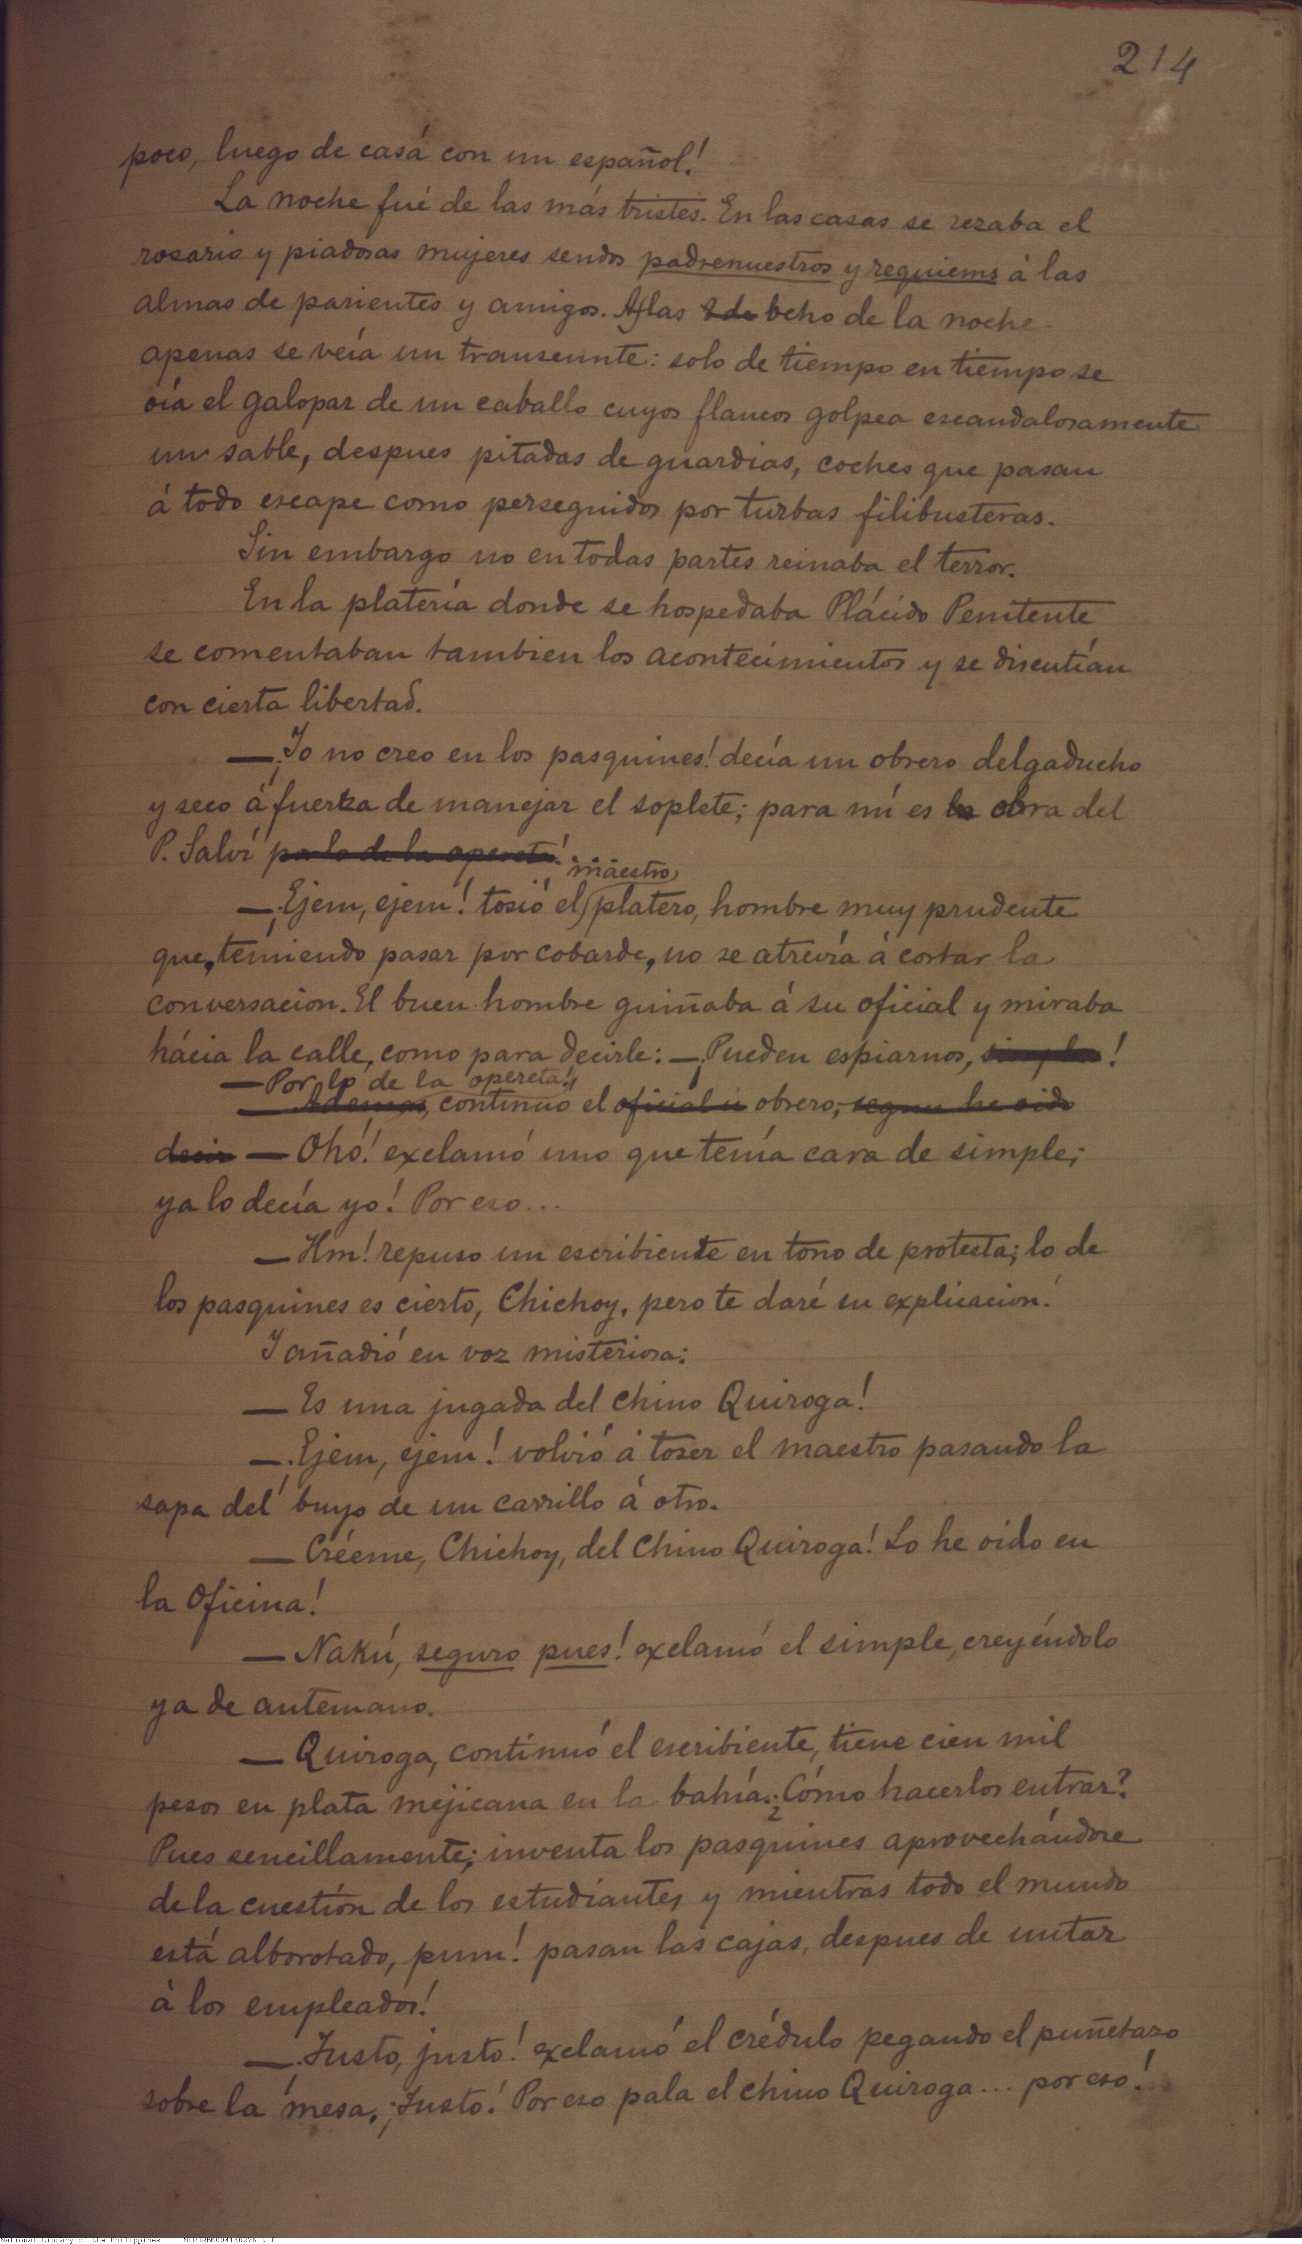 214
poco, luego de casá con un español!
La noche fué de las más tristes. En las casas se rezaba el
rosario y piadosas mujeres sendos padrenuestros y requiems á las
almas de parientes y amigos. A las ocho de la noche
apenas se veía un transeunte: solo de tiempo en tiempo se
oía el galopar de un caballo cuyos flancos golpea escandalosamente
un sable, despues pitadas de guardias, coches que pasan
á todo escape como perseguidos por turbas filibusteras.
Sin embargo no en todas partes reinaba el terror.
En la platería donde se hospedaba Plácido Penitente
se comentaban tambien los acontecimientos y se discutían
con cierta libertad.
— ¡Yo no creo en los pasquines! decía un obrero delgaducho
y seco á fuerza de manejar el soplete; para mí es la obra del
P. Salví por lo de la opereta!
maestro
— ¡Ejem, ejem! tosió el platero, hombre muy prudente
que, temiendo pasar por cobarde, no se atrevía á cortar la
conversacion. El buen hombre guiñaba á su oficial y miraba
hácia la calle, como para decirle: — ¡Pueden espiarnos, !
— Por lo de la opereta!
— Además, continuó el oficial ú obrero, segun he oido
decir — Ohó! exclamó uno que tenía cara de simple;
ya lo decía yo! Por eso...
— Hm! repuso un escribiente en tono de protesta; lo de
los pasquines es cierto, Chichoy, pero te daré su explicacion!
Y añadió en voz misteriosa:
— Es una jugada del chino Quiroga!
— ¡Ejem, ejem! volvió á toser el maestro pasando la
sapa del buyo de un carrillo á otro.
— Créeme, Chichoy, del chino Quiroga! Lo he oido en
la Oficina!
— Nakú, seguro pues! exclamó el simple, creyéndolo
ya de antemano.
— Quiroga, continuó el escribiente, tiene cien mil
pesos en plata mejicana en la bahía. ¿Cómo hacerlos entrar?
Pues sencillamente; inventa los pasquines aprovechándose
de la cuestión de los estudiantes, y mientras todo el mundo
está alborotado, pum! pasan las cajas, despues de untar
á los empleados!
— ¡Justo, justo! exclamó el crédulo pegando el puñetazo
sobre la mesa, ¡Justo! Por eso pala el chino Quiroga... por eso!
National Library of the Philippines